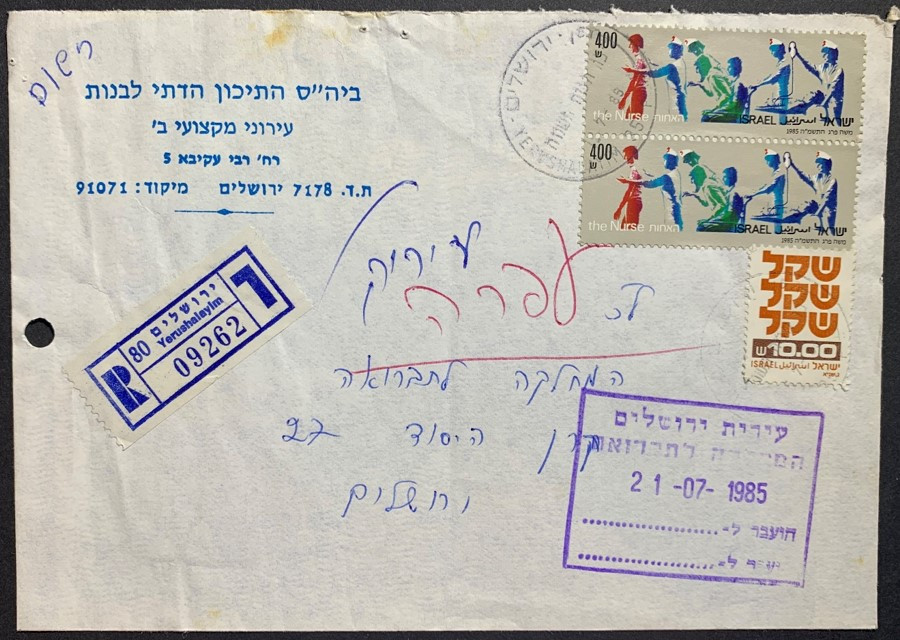 רשום
ביה״ס התיכון הדתי לבנות
עירוני מקצועי ב׳
רח׳ רבי עקיבא 5
ת.ד. 7178 ירושלים מיקוד: 91071
ירושלים
YERUSHALAYIM
400
ש
the Nurse האחות
ISRAEL اسرائيل ישראל
1985 משה פרג התשמ״ה
400
ש
the Nurse האחות
ISRAEL اسرائيل ישראל
1985 משה פרג התשמ״ה
שקל
שקל
שקל
ש 10.00
ISRAEL اسرائيل ישראל
R
80 ירושלים
Yerushalayim
09262
עיריית
עפרה
המחלקה לתברואה
קרן היסוד 27
ירושלים
עירית ירושלים
המחלקה לתברואה
21-07-1985
הועבר ל-